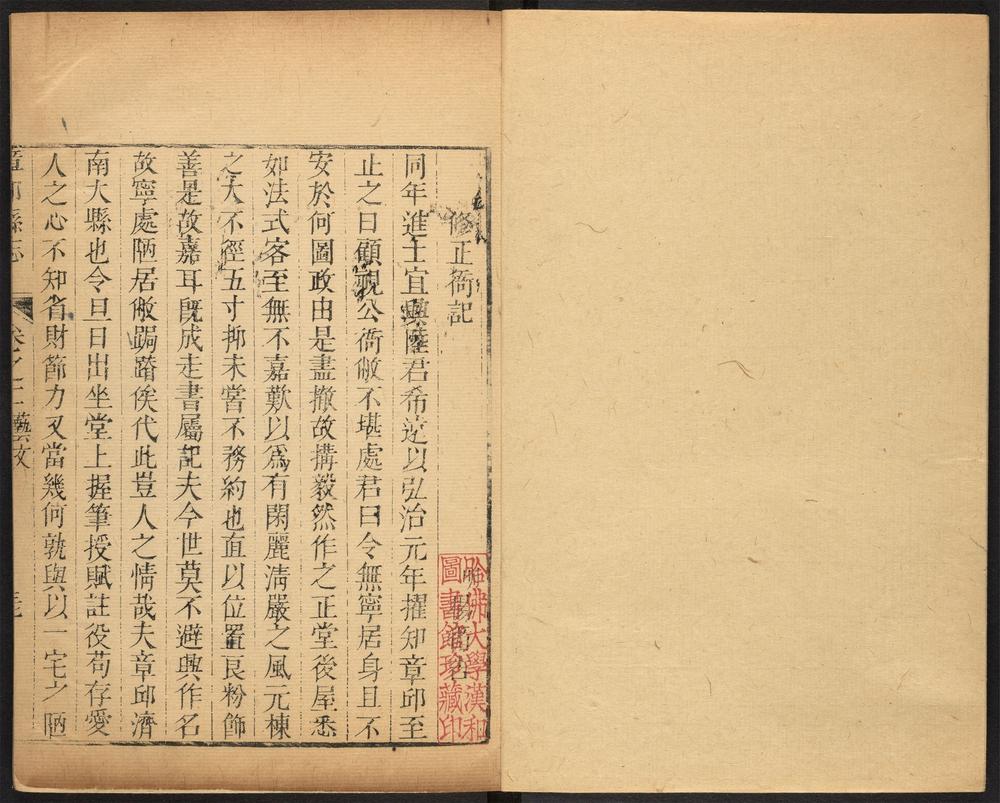 修正衙記
同年進士宜興陸君希達以弘治元年擢知章邱至
止之日顧視公衙敝不堪處君曰令無寧居身且不
安於何圖政由是盡撤故搆毅然作之正堂後屋悉
如法式客至無不嘉歎以為有閎麗淸嚴之風元棟
之大不徑五寸抑未嘗不務約也直以位置艮粉飾
善是故嘉耳旣成走書屬記夫今世莫不避興作名
故寧處陋居敝跼蹐俟代此豈人之情哉夫章邱濟
南大縣也令旦日出坐堂上握筆授賦註役苟存愛
人之心不知省財節力又當幾何孰與以一宅之陋
章邱縣志 卷之十二藝文
哈佛大學漢和
圖書館珍藏印